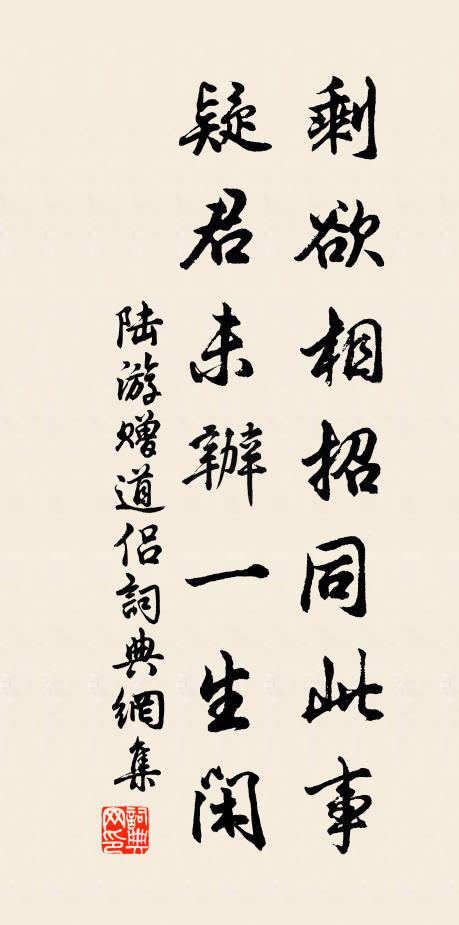 剩欲相招同此事
疑君未辦一生閑
陸游贈道侶詞典網集
詞典网印